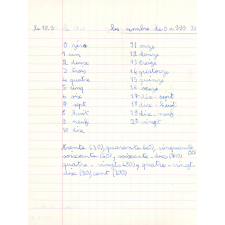 Les nombre de 0 à
0 zéro
1 un
2 deux
3 trois
4 quatre
5 cinq
6 six
7 sept
8 huit
9 neuf
10 dix
11 onze
12 douze
13 treize
14 quatorze
15 quinze
16 seize
17 dix-sept
18 dix-huit
19 dix-neuf
20 vingt
trente (30), quarante (40), cinquante (50)
soixante (60), soixante-dix (70)
quatre-vingts (80), quatre-vingt-
dix (90), cent (100)